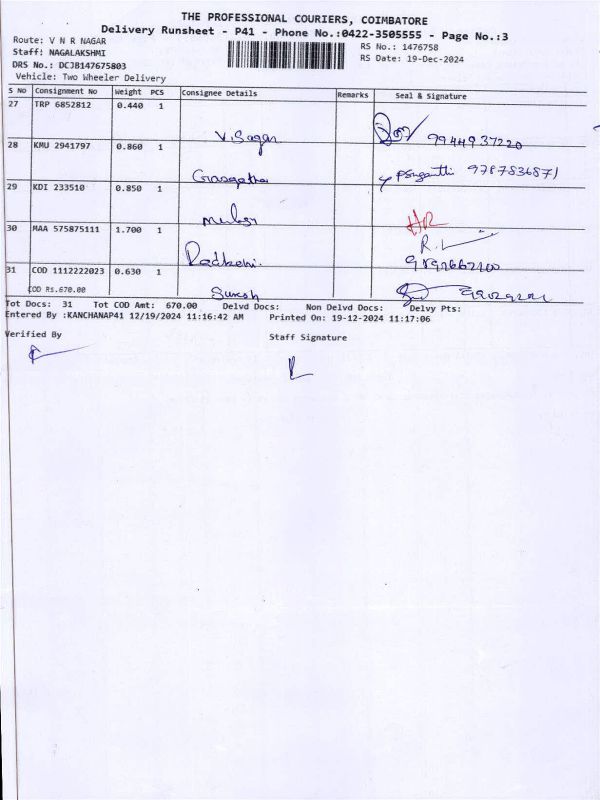 THE PROFESSIONAL COURIERS, COIMBATORE
Delivery Runsheet - P41 - Phone No.:0422-3505555 - Page No.:3
Route: V N R NAGAR
RS No.: 1476758
Staff: NAGALAKSHMI
RS Date: 19-Dec-2024
DRS No.: DCJB147675803
Vehicle: Two Wheeler Delivery
S No Consignment No Weight PCS Consignee Details Remarks Seal & Signature
27 TRP 6852812 0.440 1
V. Sagar 9944937220
28 KMU 2941797 0.860 1
9787836871
29 KDI 233510 0.850 1
30 MAA 575875111 1.700 1
31 COD 1112222023 0.630 1
COD Rs.670.00
Suresh
Tot Docs: 31 Tot COD Amt: 670.00 Delvd Docs: Non Delvd Docs: Delvy Pts:
Entered By :KANCHANAP41 12/19/2024 11:16:42 AM Printed On: 19-12-2024 11:17:06
Verified By
Staff Signature